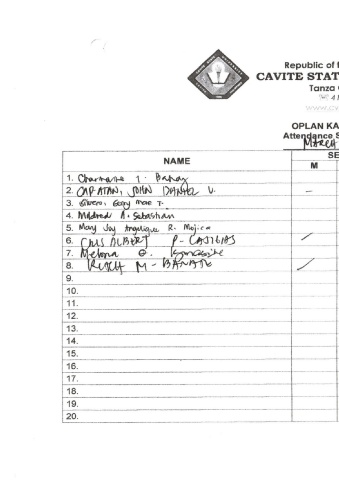 Republic of
CAVITE STAT
Tanza
OPLAN KA
Attendance S
MARCH
NAME
SE
M
1. Charmaine I.
2. CAPATAN, JOHN DANIEL V.
3. Mae T.
4. Mildred A. Sebastian
5. Mary Joy Angelique R. Mojica
6. ALBERT P. CASTIGAS
7. Melona G.
8. M. BANATE
9.
10.
11.
12.
13.
14.
15.
16.
17.
18.
19.
20.